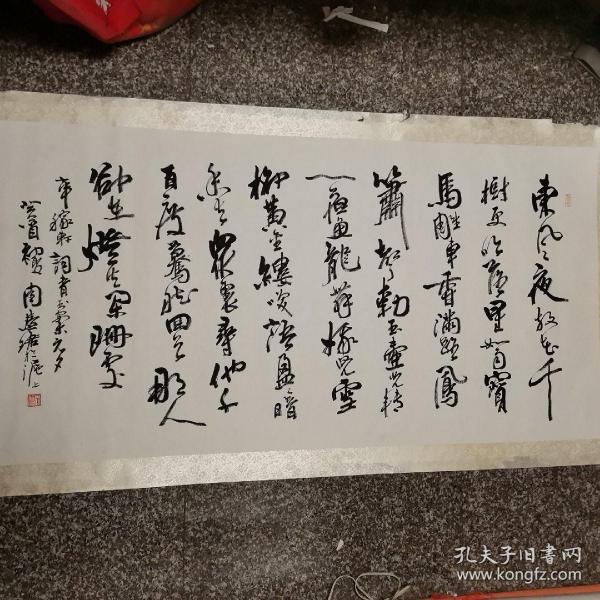 東風夜放花千
樹更吹落星如雨寶
馬雕車香滿路鳳
簫聲動玉壺光轉
一夜魚龍舞蛾兒雪
柳黃金縷笑語盈盈暗
香去衆裏尋他千
百度驀然回首那人
卻在燈火闌珊處
辛稼軒詞青玉案元夕
周慧珺
孔夫子旧书网
www.kongfz.com